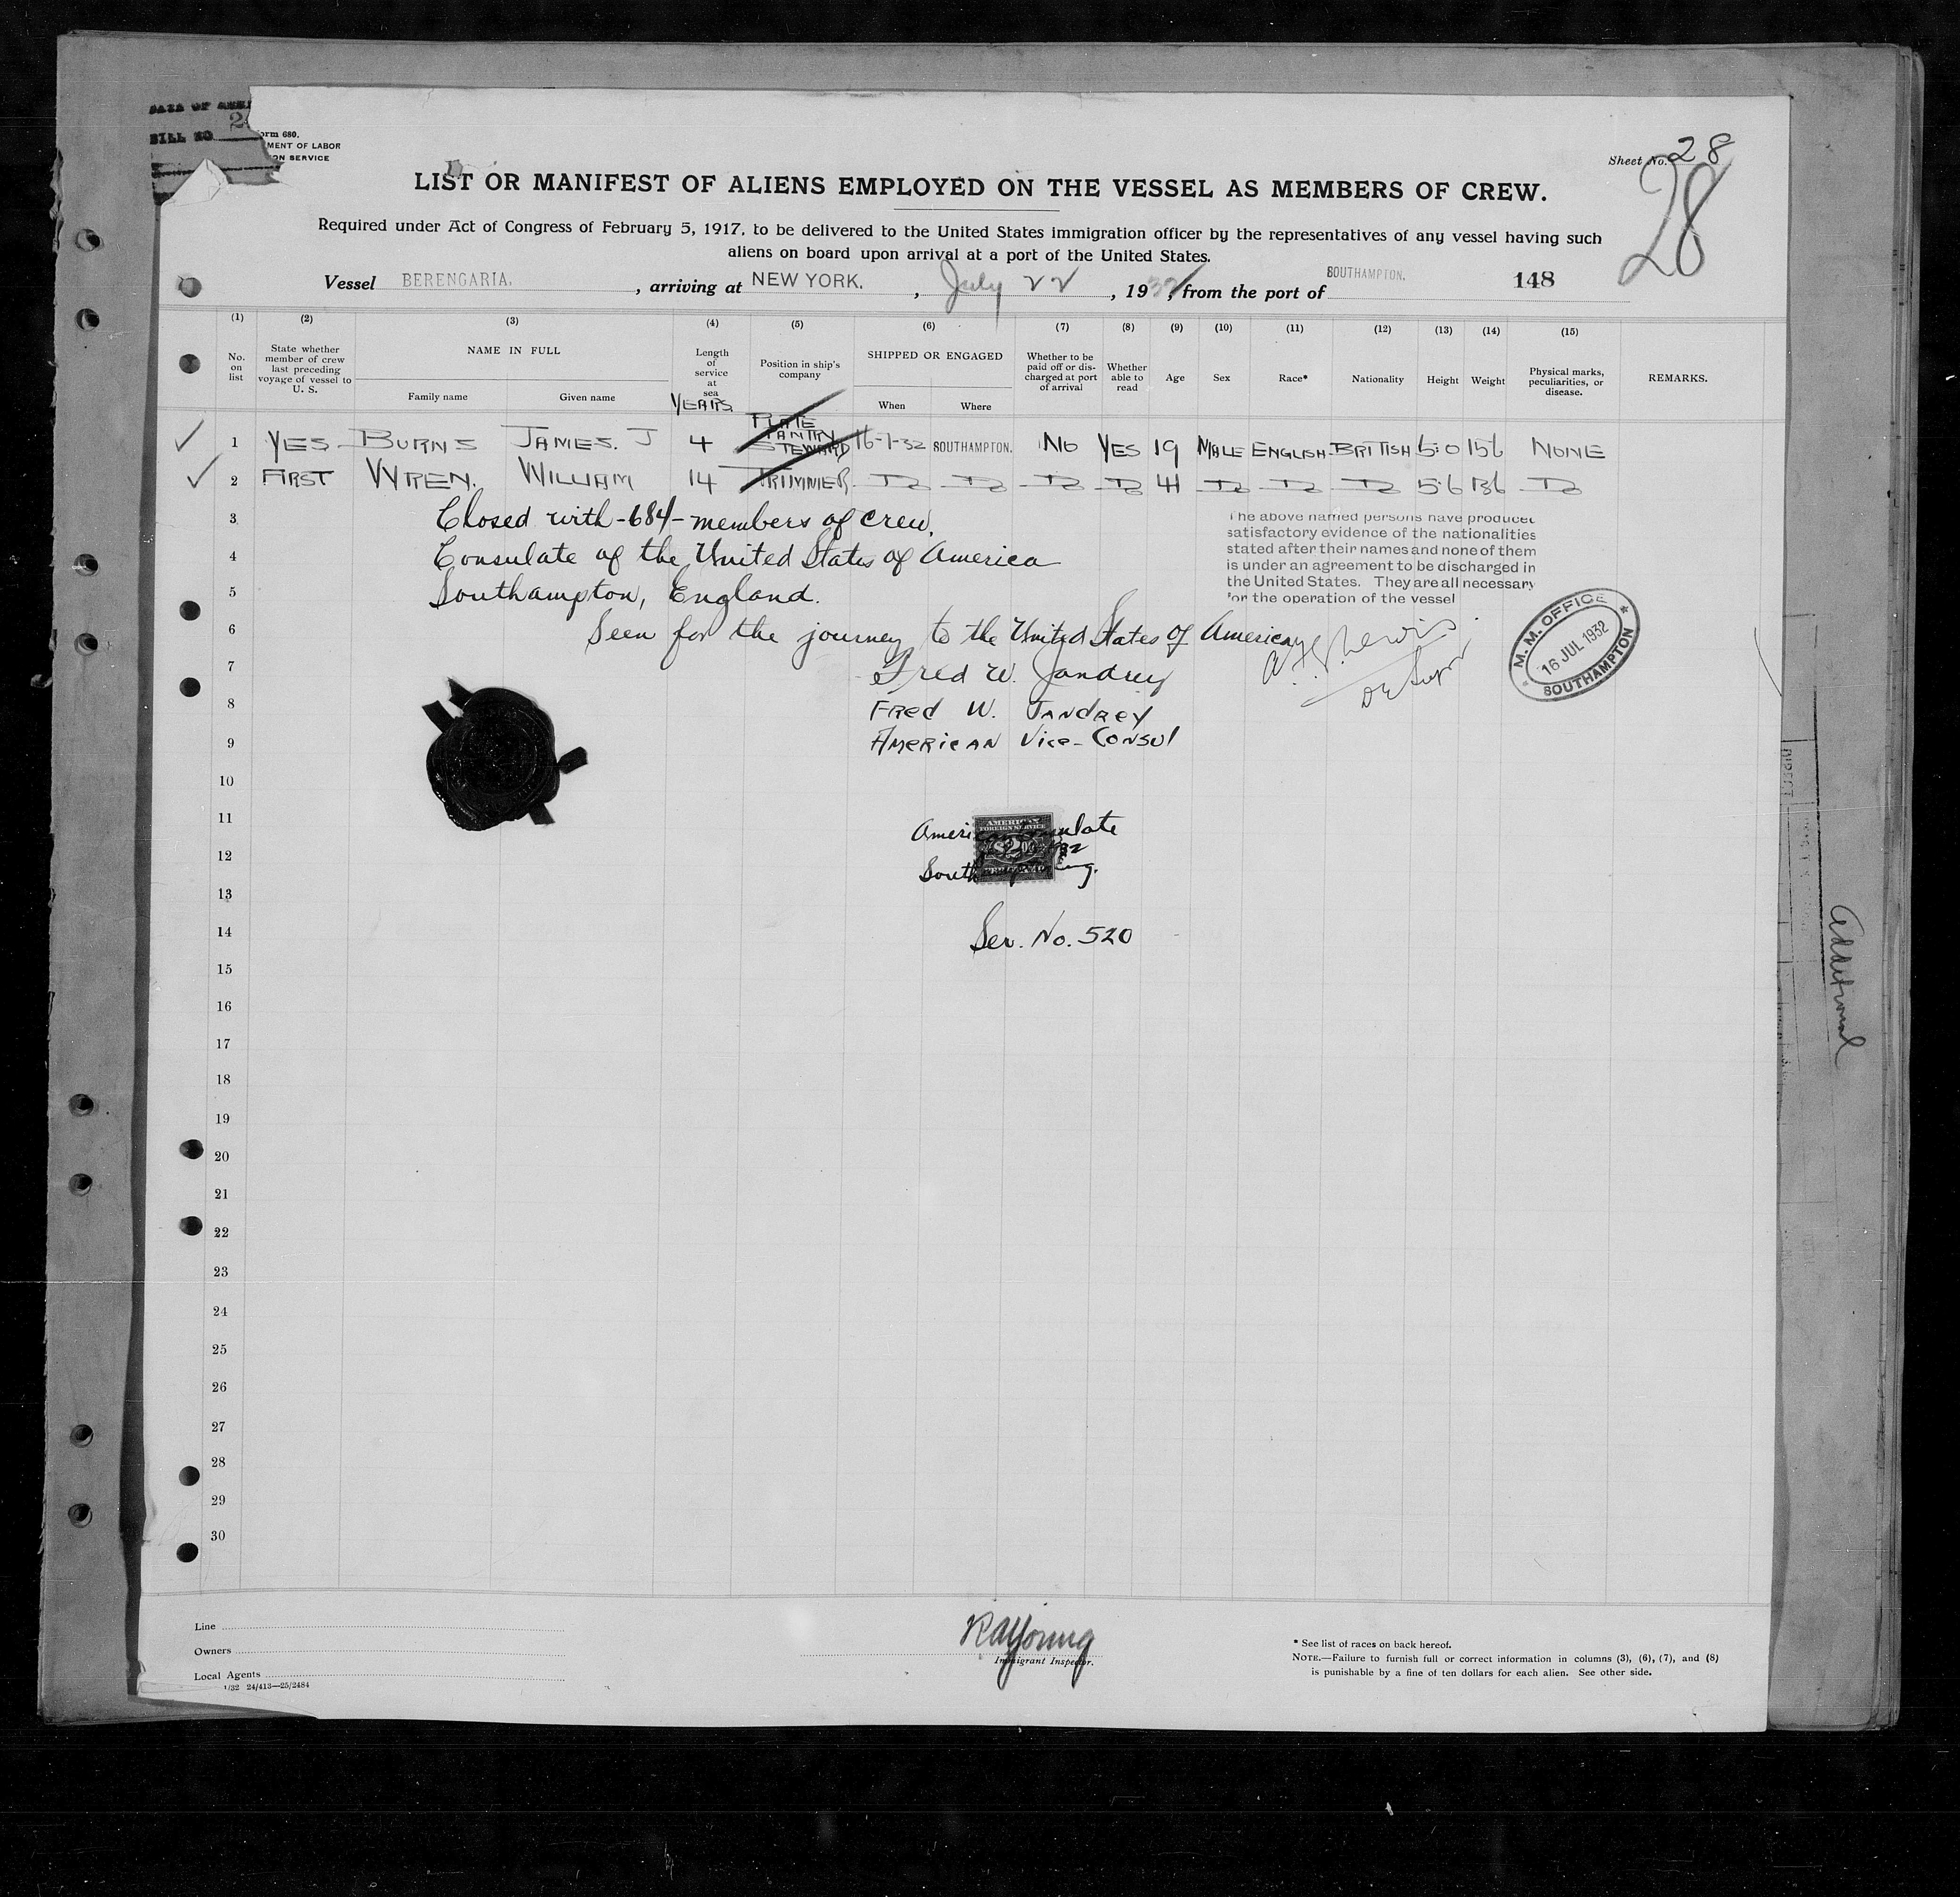 BILL NO 2
orm 680.
MENT OF LABOR
ON SERVICE
Sheet No. 28
28
LIST OR MANIFEST OF ALIENS EMPLOYED ON THE VESSEL AS MEMBERS OF CREW.
Required under Act of Congress of February 5, 1917, to be delivered to the United States immigration officer by the representatives of any vessel having such
aliens on board upon arrival at a port of the United States.
Vessel BERENGARIA. , arriving at NEW YORK. , July 22 , 1932, from the port of SOUTHAMPTON. 148
(1) (2) (3) (4) (5) (6) (7) (8) (9) (10) (11) (12) (13) (14) (15)
No. on list State whether member of crew last preceding voyage of vessel to U. S. NAME IN FULL Family name Given name Length of service at sea YEARS Position in ship's company SHIPPED OR ENGAGED When Where Whether to be paid off or discharged at port of arrival Whether able to read Age Sex Race* Nationality Height Weight Physical marks, peculiarities, or disease. REMARKS.
1 YES BURNS JAMES. J 4 PLATE PANTRY STEWARD 16-7-32 SOUTHAMPTON. NO YES 19 MALE ENGLISH BRITISH 5:0 156 NONE
2 FIRST WREN. WILLIAM 14 TRIMMER Do Do Do Do 41 Do Do Do 5:6 136 Do
3 Closed with -684- members of crew.
4 Consulate of the United States of America
5 Southampton, England.
The above named persons have produced
satisfactory evidence of the nationalities
stated after their names and none of them
is under an agreement to be discharged in
the United States. They are all necessary
for the operation of the vessel
6 Seen for the journey to the United States of America
7 Fred W. Jandrey
8 Fred W. Jandrey
9 American Vice-Consul
Lewis
M. M. OFFICE
16 JUL 1932
SOUTHAMPTON
10
11 American Consulate
AMERICAN
FOREIGN SERVICE
$2.00
12
Southampton, Eng.
13
14 Ser. No. 520
15
16
17
18
19
20
21
22
23
24
25
26
27
28
29
30
Additional
Line
Owners
Local Agents
1/32 24/413—25/2484
R A Young
Immigrant Inspector.
* See list of races on back hereof.
NOTE.—Failure to furnish full or correct information in columns (3), (6), (7), and (8)
is punishable by a fine of ten dollars for each alien. See other side.